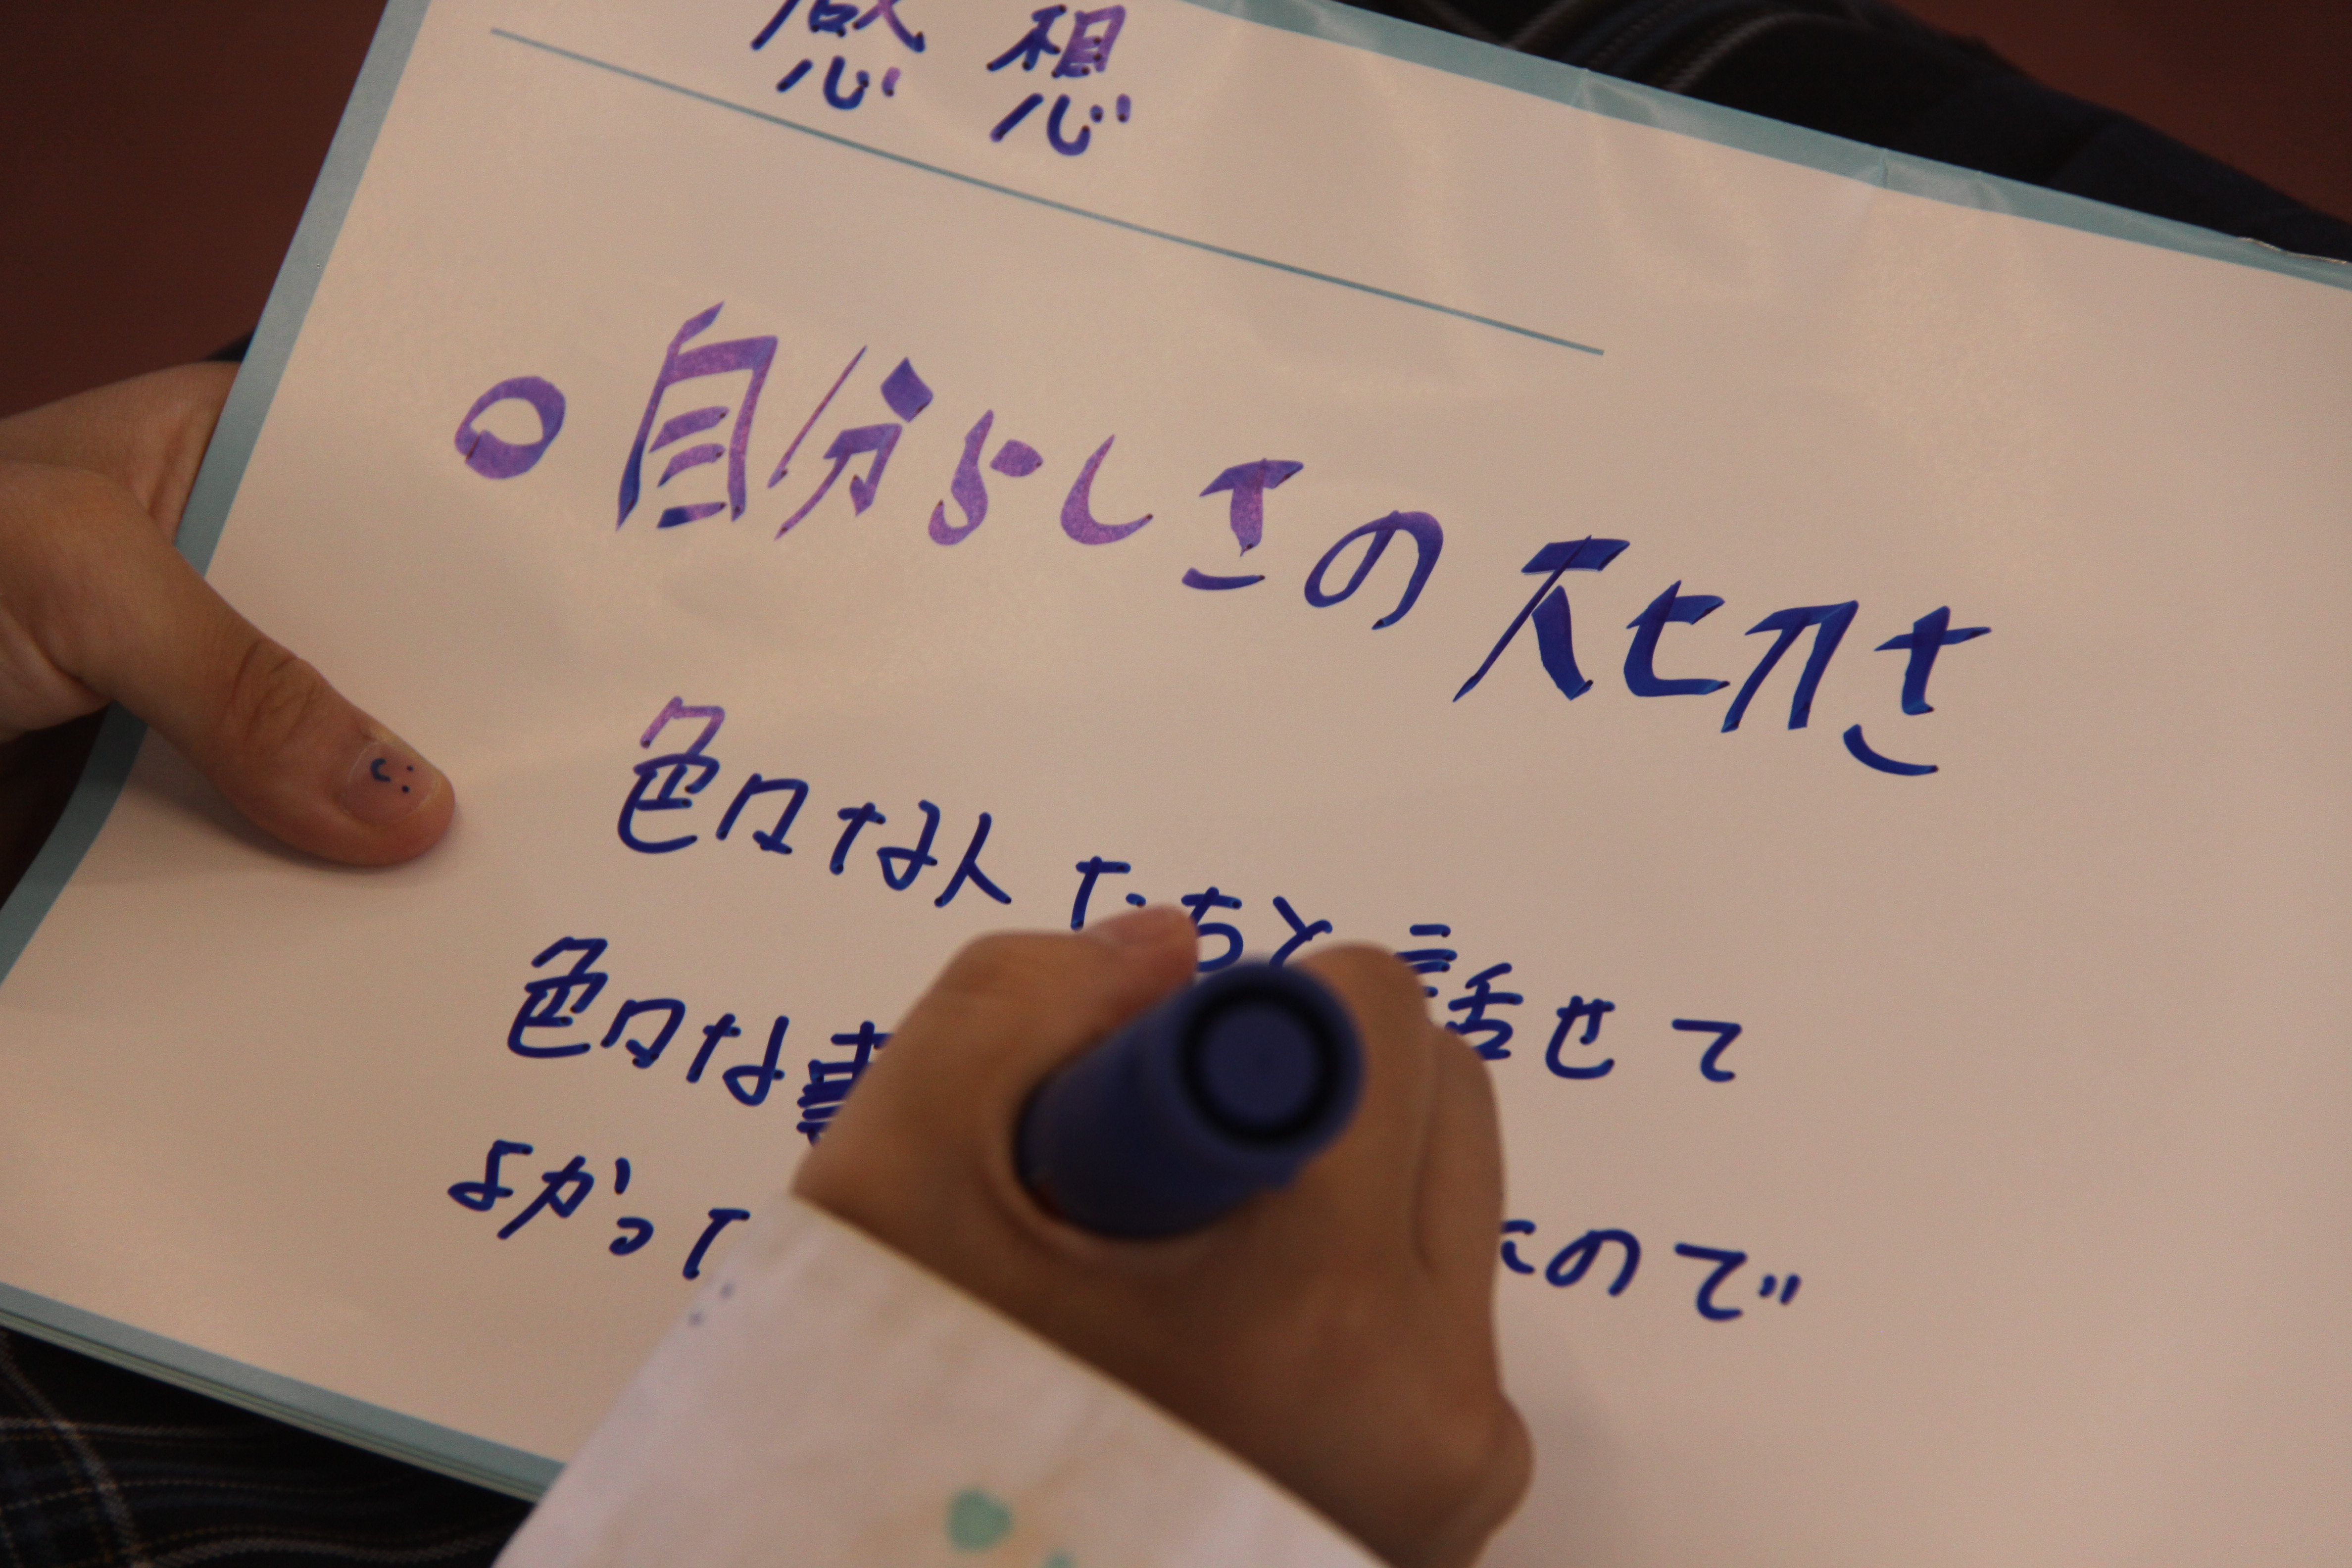 感想
○自分らしさの大切さ
色々な人たちと話せて
色々な
よかっての で